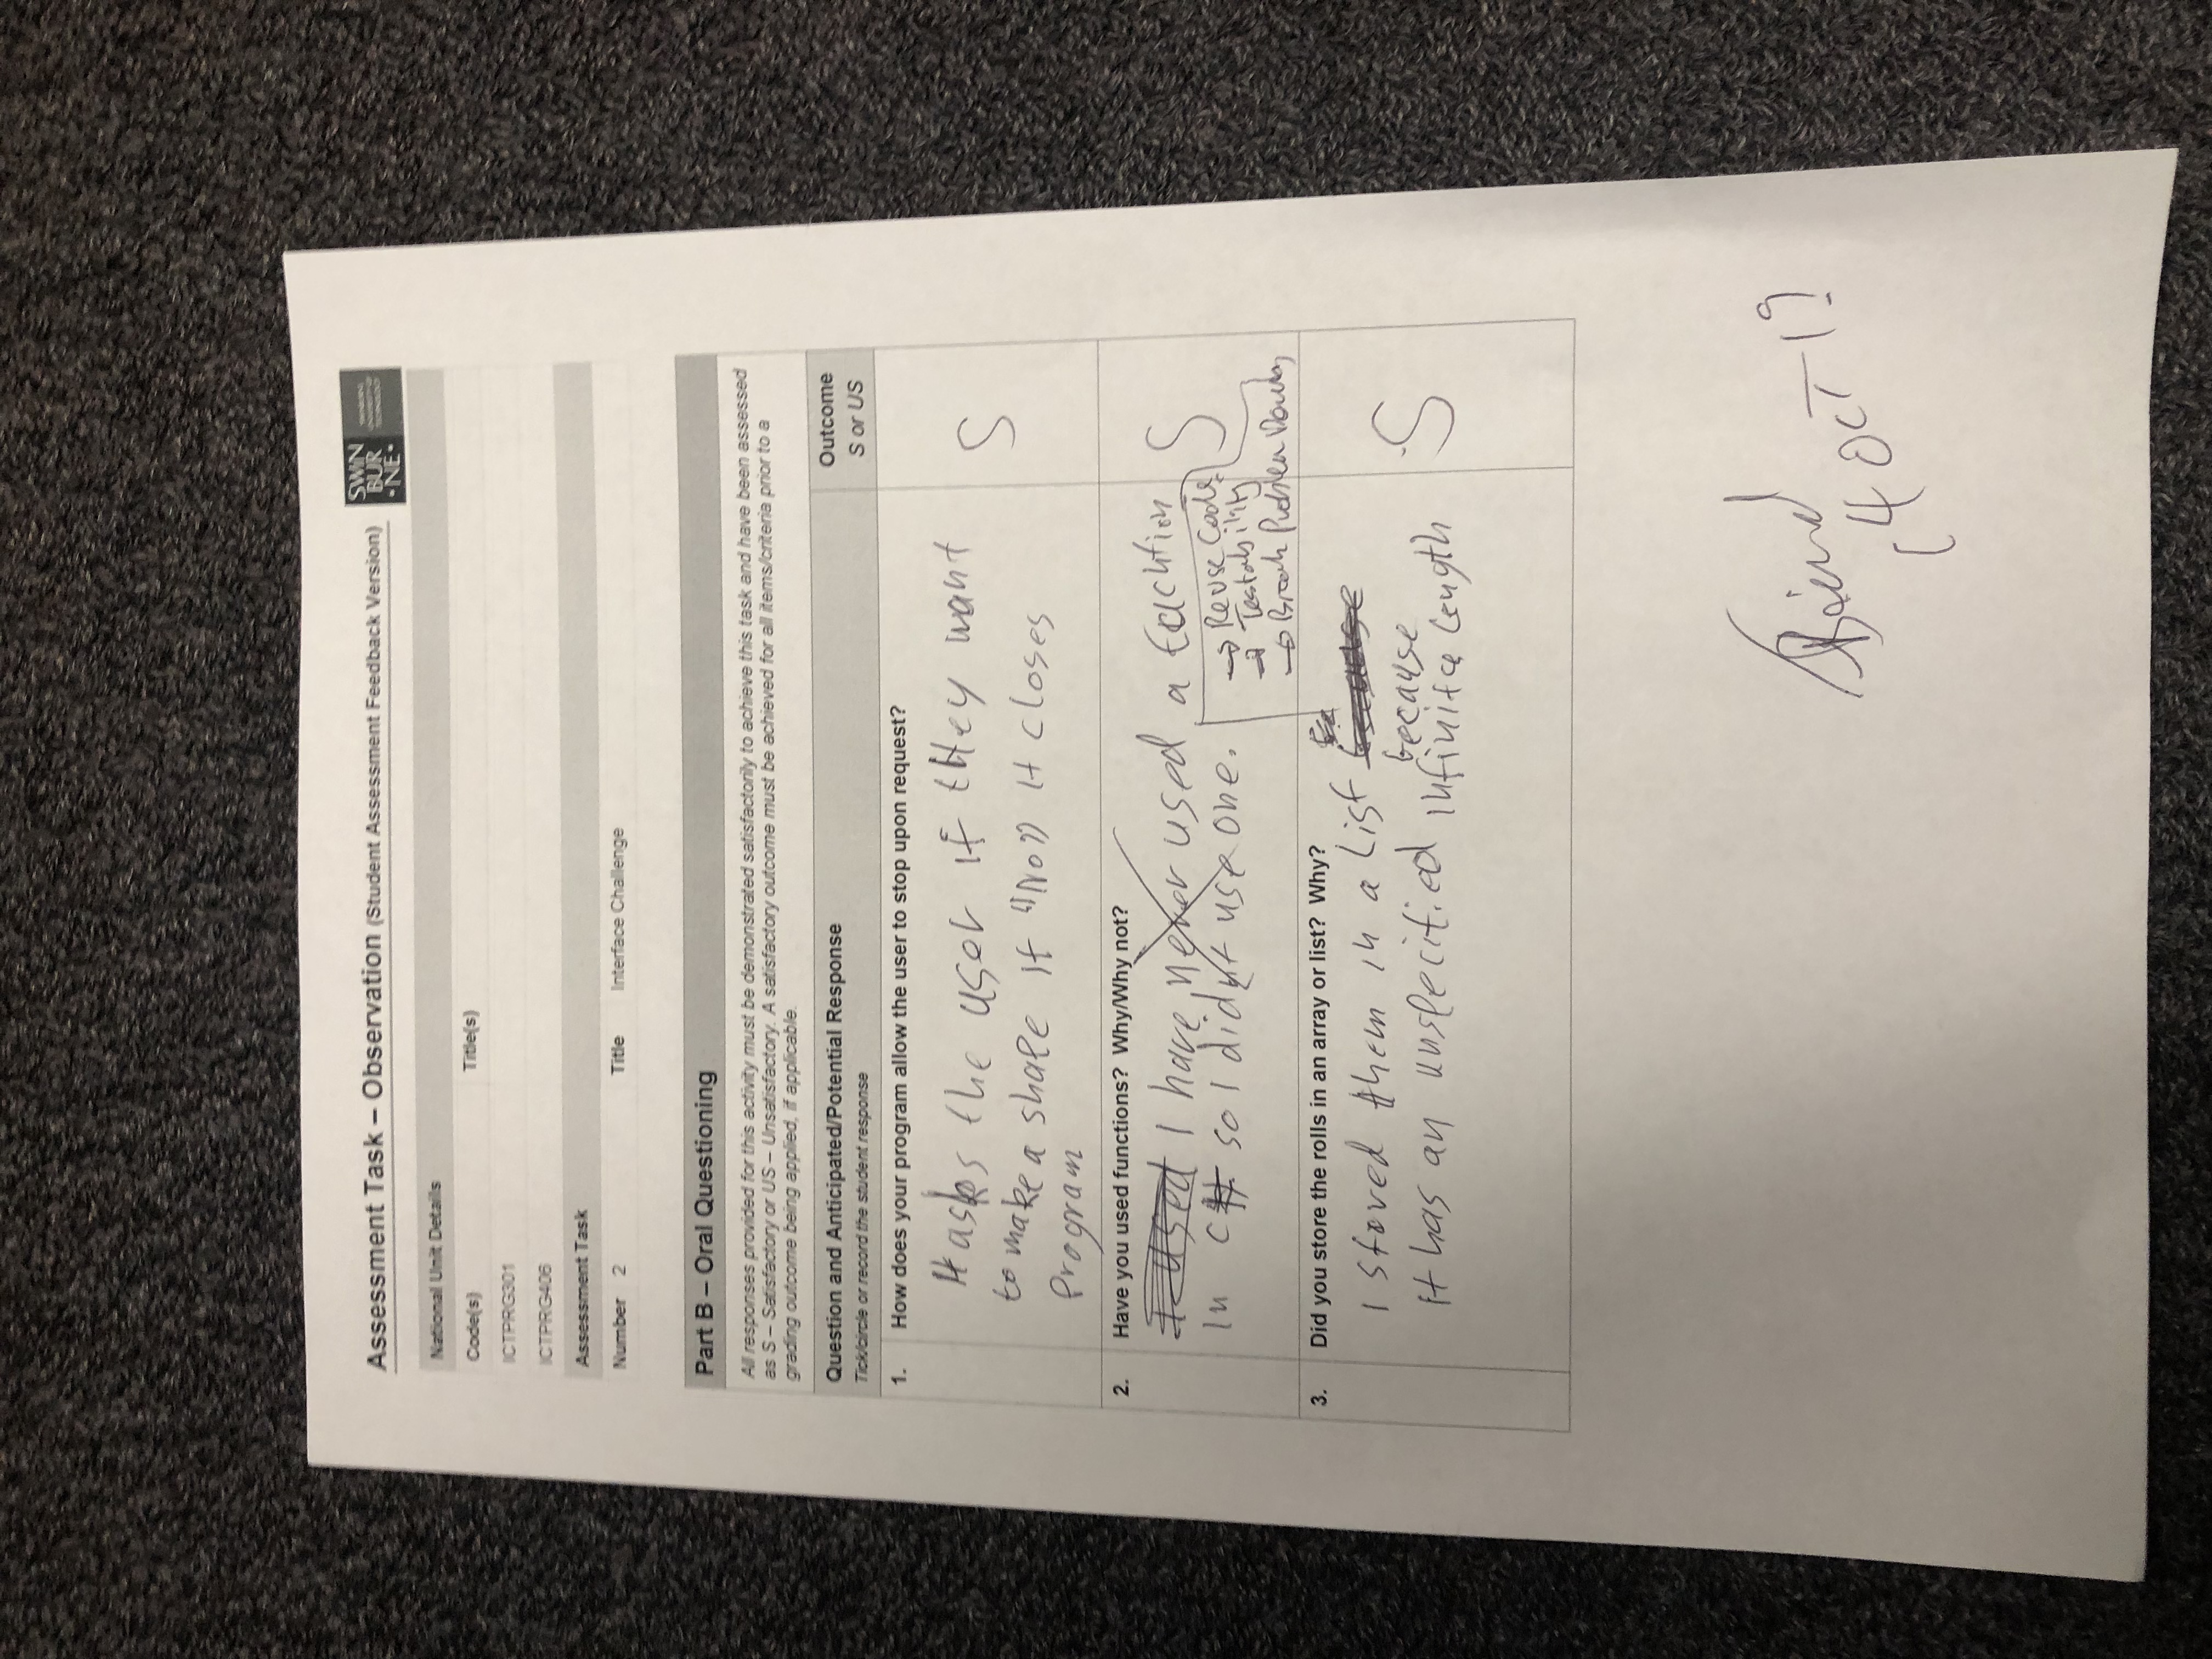 Assessment Task – Observation (Student Assessment Feedback Version)
SWIN
BUR
•NE•
SWINBURNE
UNIVERSITY OF
TECHNOLOGY
National Unit Details
Code(s) Title(s)
ICTPRG301
ICTPRG406
Assessment Task
Number 2 Title Interface Challenge
Part B – Oral Questioning
All responses provided for this activity must be demonstrated satisfactorily to achieve this task and have been assessed
as S – Satisfactory or US – Unsatisfactory. A satisfactory outcome must be achieved for all items/criteria prior to a
grading outcome being applied, if applicable.
Question and Anticipated/Potential Response Outcome
Tick/circle or record the student response S or US
1. How does your program allow the user to stop upon request?
It asks the user if they want
to make a shape if "No" it closes
Program
S
2. Have you used functions? Why/Why not?
I used I have never used a
In C# so I didn't use one.
→ Reuse Code
→ Testability
→ Break Problem Down
S
3. Did you store the rolls in an array or list? Why?
I stored them in a list because
because
it has an unspecified infinite length
S
14 OCT 19